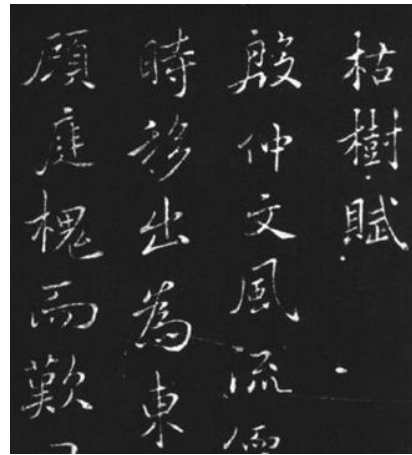 枯樹賦
殷仲文風流儒
時移出為東
顧庭槐而歎